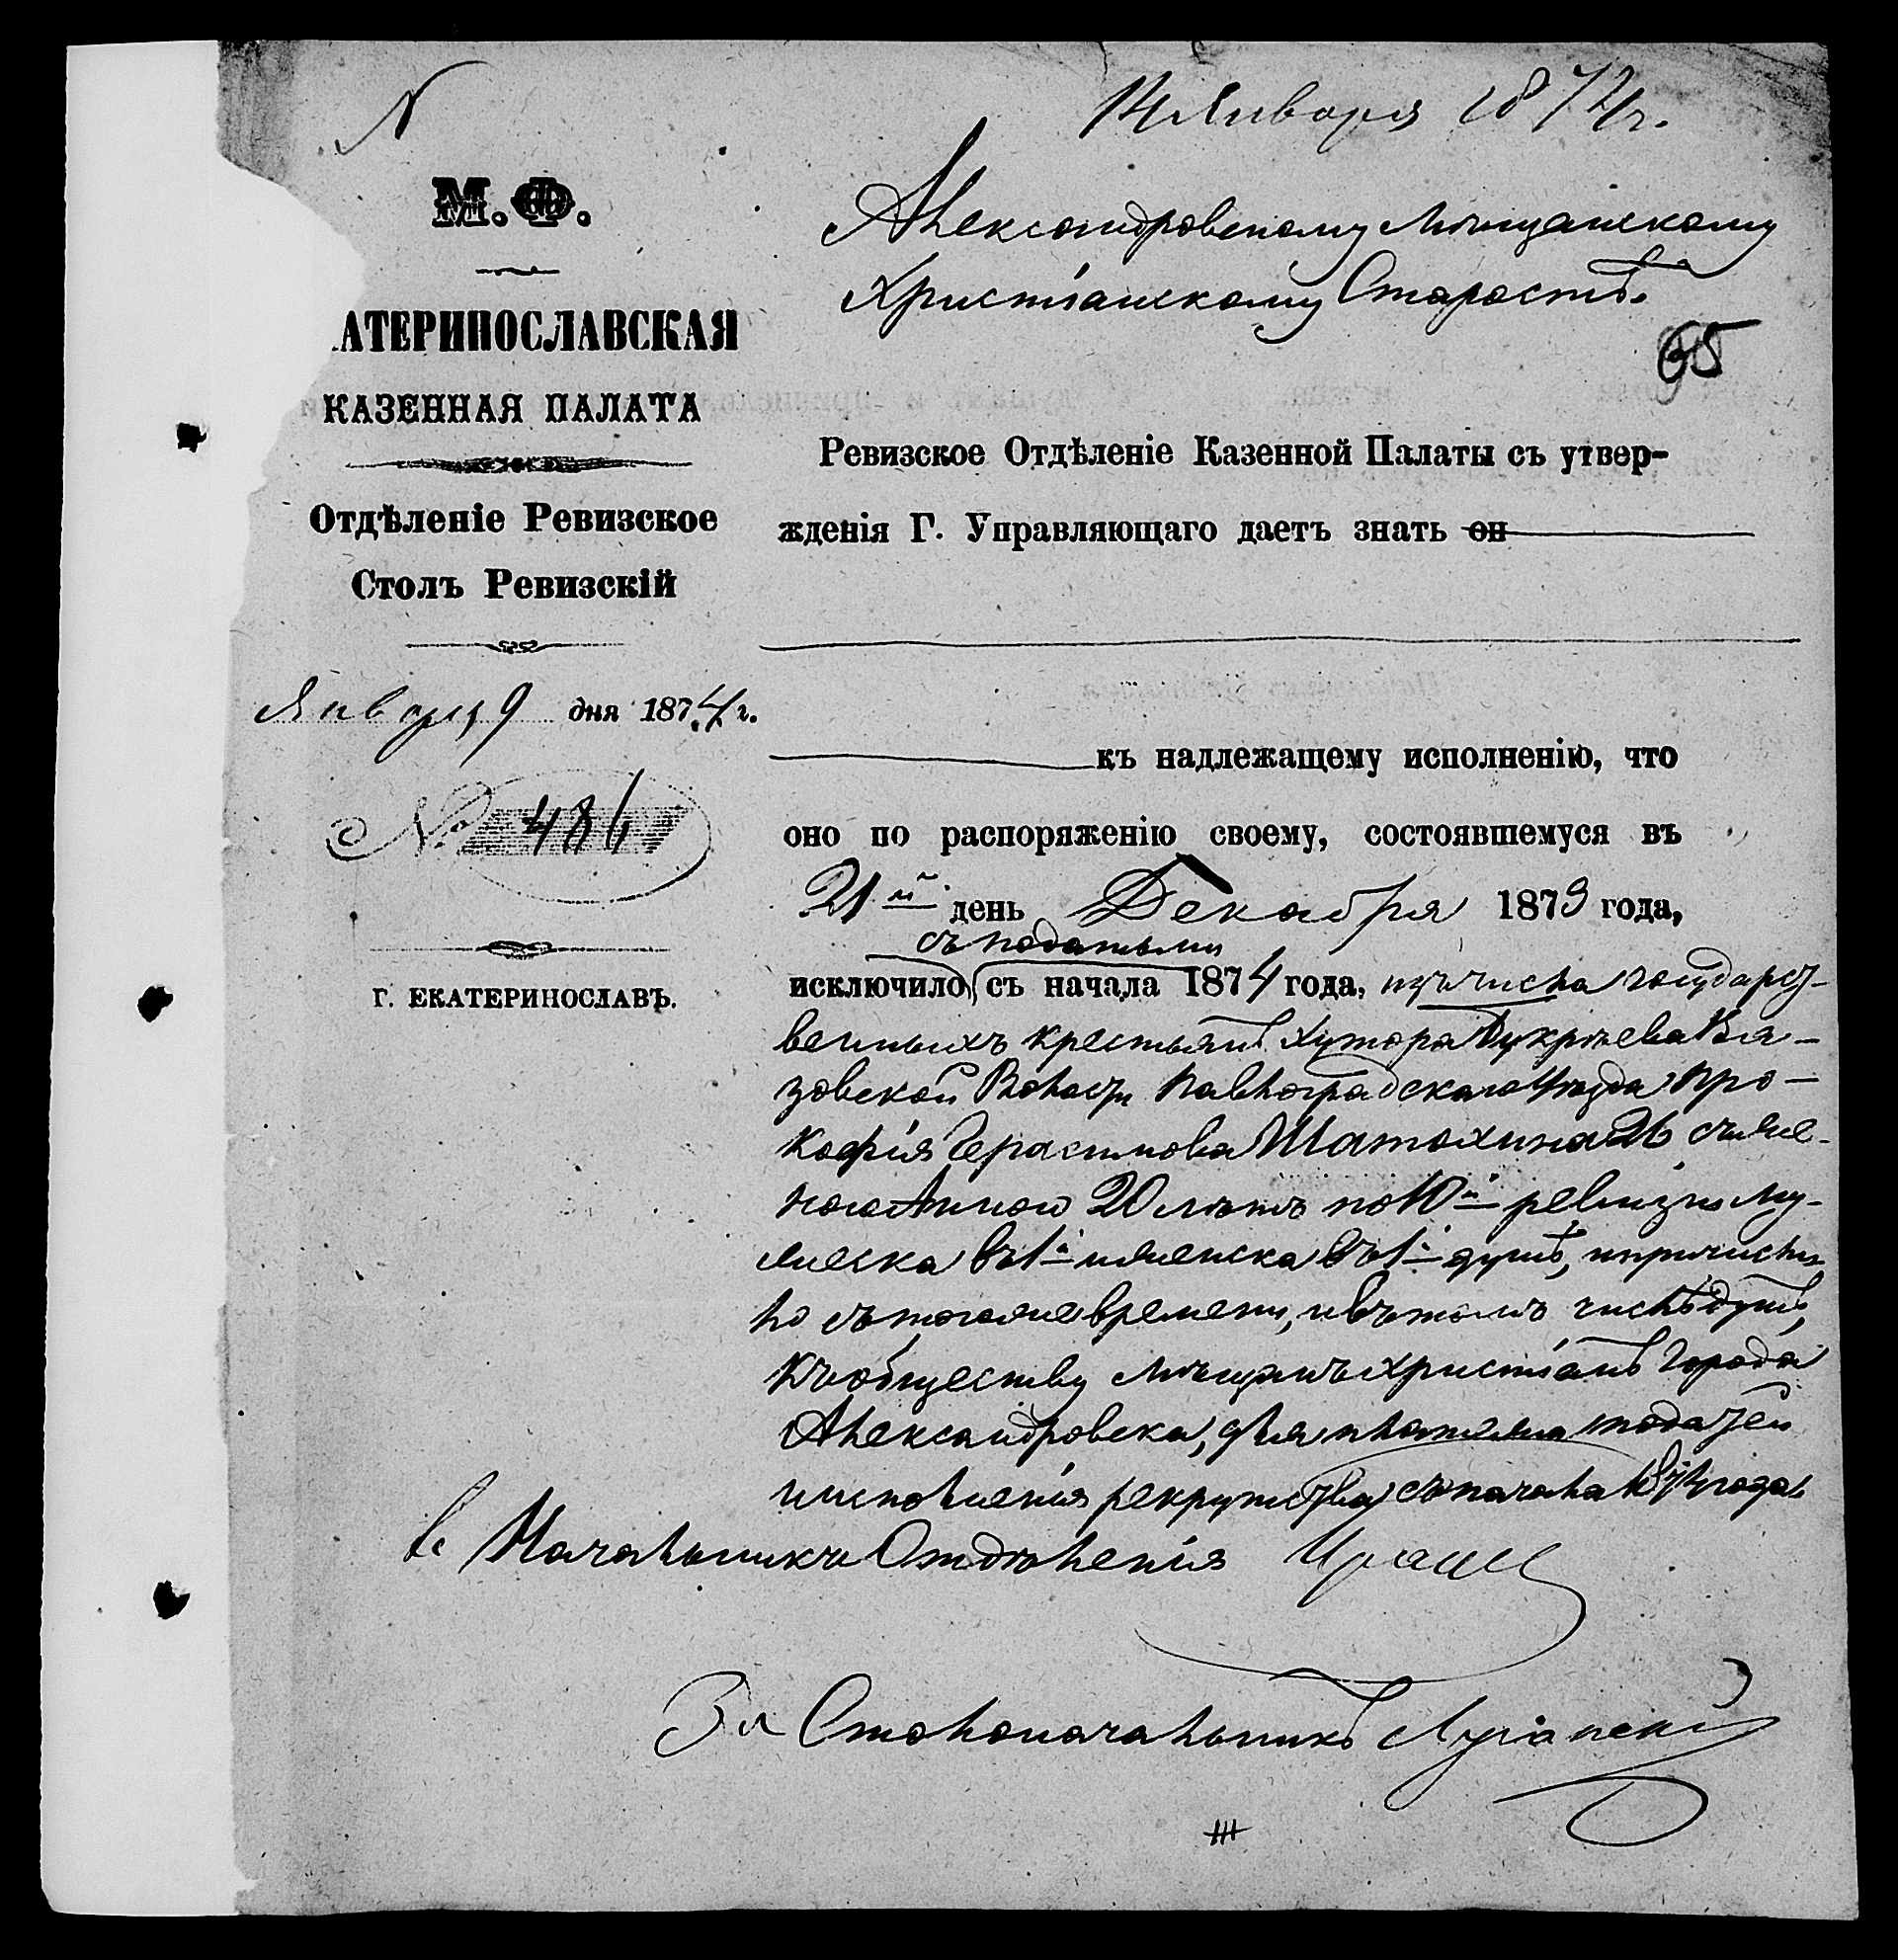 14 Января 1874 г.
М.Ф.
АТЕРИНОСЛАВСКАЯ
КАЗЕННАЯ ПАЛАТА
Отдѣленіе Ревизское
Столъ Ревизскій
Января 9 дня 1874 г.
№ 486
Г. ЕКАТЕРИНОСЛАВЪ.
Александровскому Мѣщанскому
Христіанскому Старостѣ.
65
Ревизское Отдѣленіе Казенной Палаты съ утвер-
жденія Г. Управляющаго даетъ знать он
къ надлежащему исполненію, что
оно по распоряженію своему, состоявшемуся въ
21й день Декабря 1873 года,
съ податьми
исключило, съ начала 1874 года, изъ числа государст-
венныхъ крестьянъ хутора Букрѣева Вя-
зовской Волости Павлоградскаго Уѣзда Про-
кофія Герасимова Шатохина 26 съ же-
ною Анною 20 лѣтъ по 10й ревизіи му-
жеска въ 1й и женска въ 1й душѣ, и причисли-
ло съ того же времени, и въ томъ числѣ душъ,
къ обществу мѣщанъ христіанъ города
Александровска, для платежа податей
и исполненія рекрутства съ начала 1874 года
Начальникъ Отдѣленія
За Столоначальникъ Луганскій